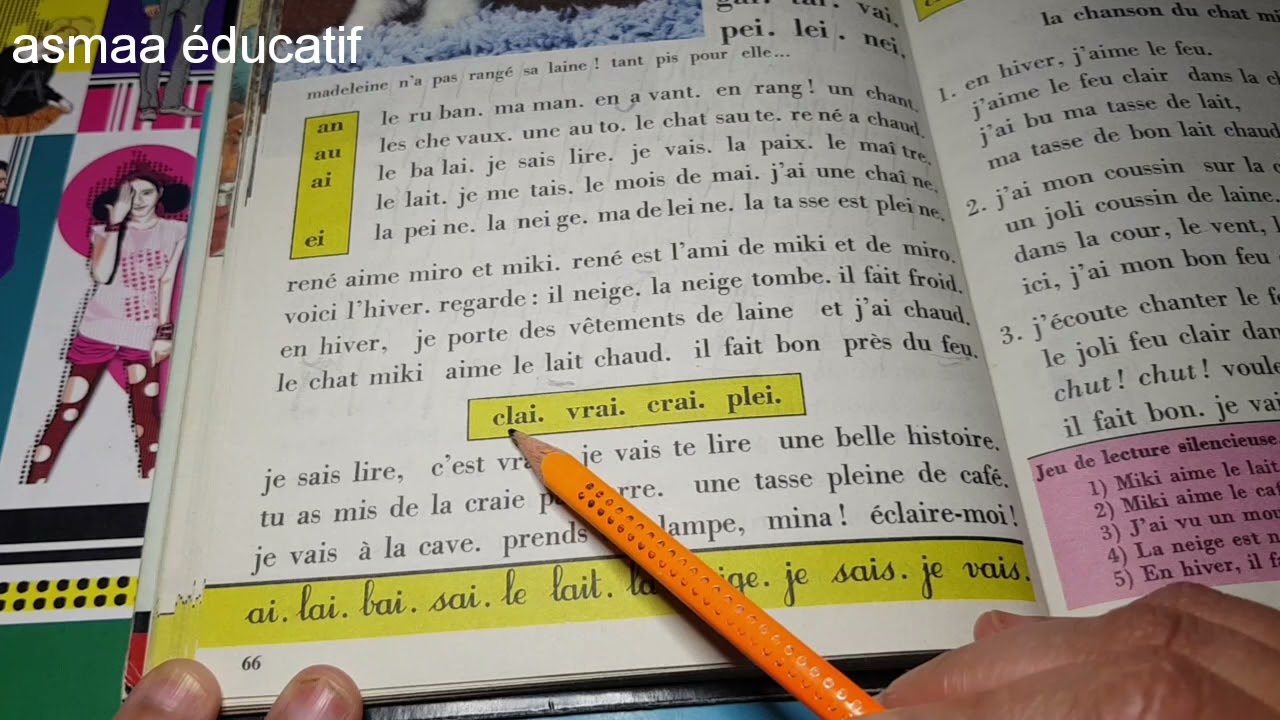 asmaa éducatif
vai.
pei. lei. nei.
madeleine n'a pas rangé sa laine ! tant pis pour elle...
an
au
ai
ei
le ru ban. ma man. en a vant. en rang ! un chant.
les che vaux. une au to. le chat sau te. re né a chaud.
le ba lai. je sais lire. je vais. la paix. le maî tre.
le lait. je me tais. le mois de mai. j'ai une chaî ne.
la pei ne. la nei ge. ma de lei ne. la ta sse est plei ne.
rené aime miro et miki. rené est l'ami de miki et de miro.
voici l'hiver. regarde : il neige. la neige tombe. il fait froid.
en hiver, je porte des vêtements de laine et j'ai chaud.
le chat miki aime le lait chaud. il fait bon près du feu.
clai. vrai. crai. plei.
je sais lire, c'est je vais te lire une belle histoire.
tu as mis de la craie une tasse pleine de café.
je vais à la cave. prends lampe, mina ! éclaire-moi !
ai. lai. bai. sai. le lait. je sais. je vais.
66
la chanson du chat
1. en hiver, j'aime le feu.
j'aime le feu clair dans la
j'ai bu ma tasse de lait,
ma tasse de bon lait chaud
2. j'ai mon coussin sur la
un joli coussin de laine.
dans la cour, le vent,
ici, j'ai mon bon feu
3. j'écoute chanter le
le joli feu clair
chut ! chut !
il fait bon. je
Jeu de lecture silencieuse
1) Miki aime le lait
2) Miki aime le
3) J'ai vu un
4) La neige est
5) En hiver, il